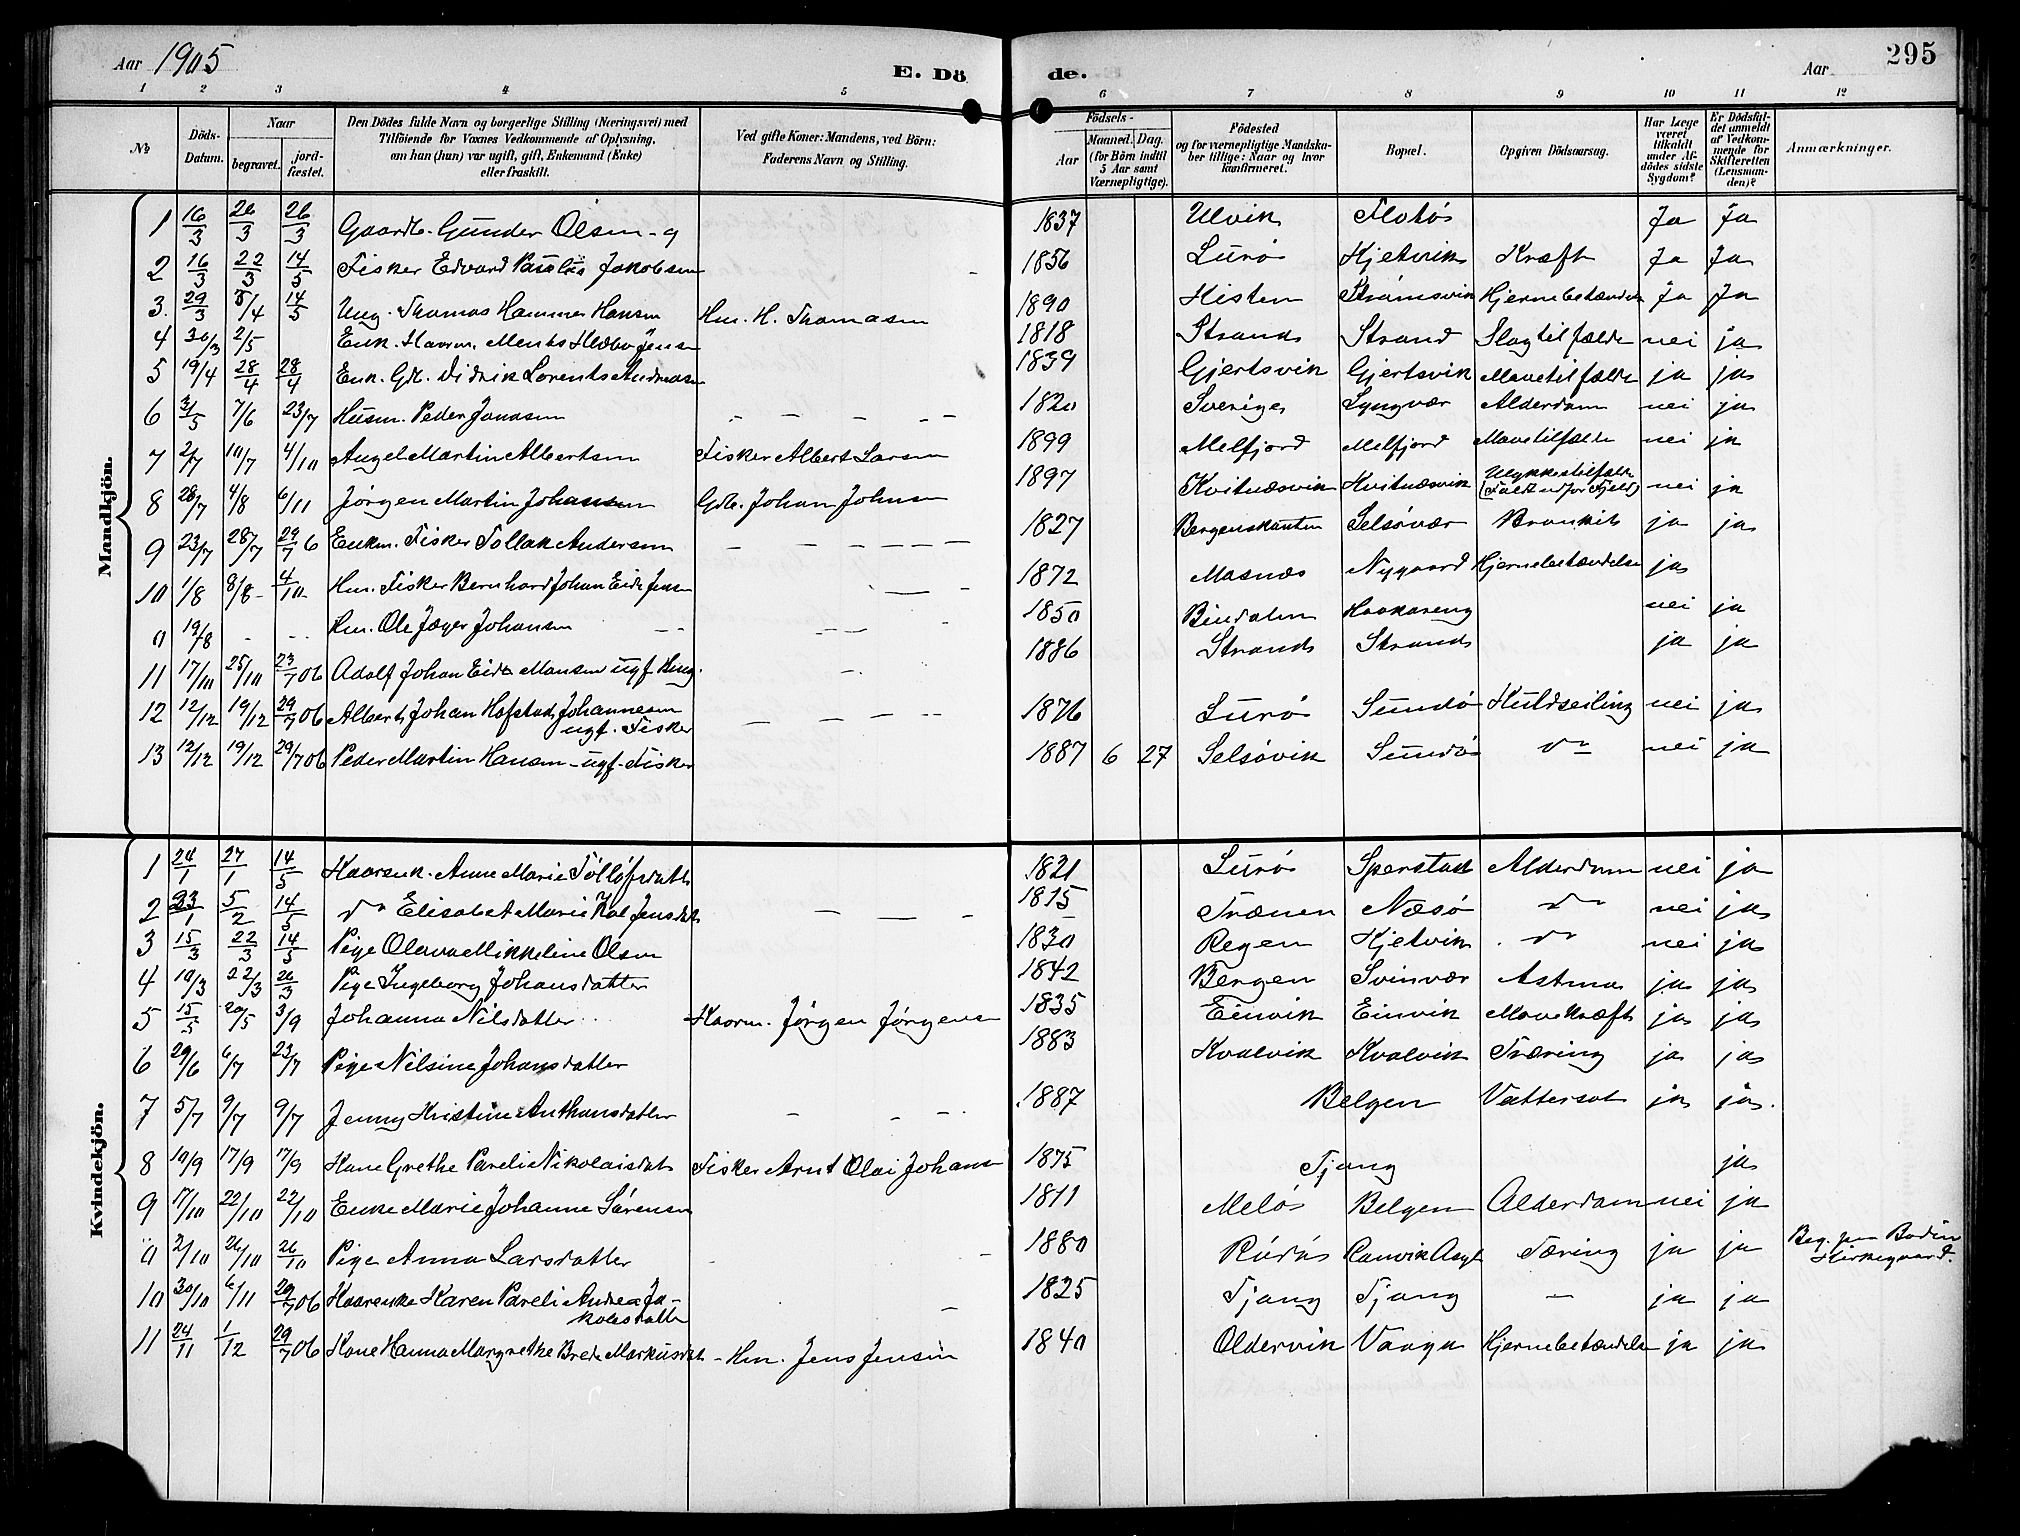 Aar 1905
E. Dö de.
Aar
295
1 2 3 4 5 6 7 8 9 10 11 12
№
Döds-Datum.
Naar
begravet.
jord-fæstet.
Den Dödes fulde Navn og borgerlige Stilling (Næringsvei) med
Tilföiende for Voxnes Vedkommende af Oplysning,
om han (hun) var ugift, gift, Enkemand (Enke)
eller fraskilt.
Ved gifte Koner: Mandens, ved Börn:
Faderens Navn og Stilling.
Födsels-
Aar
Maaned. Dag.
(for Börn indtil
5 Aar samt
Værnepligtige).
Födested
og for værnepligtige Mandska-
ber tillige: Naar og hvor
konfirmeret.
Bopæl.
Opgiven Dödsaarsag.
Har Læge
været
tilkaldt
under Af-
dödes sidste
Sygdom?
Er Dödsfal-
det anmeldt
af Vedkom-
mende for
Skifteretten
(Lensman-
den)?
Anmærkninger.
Mandkjön.
1 16/3 26/3 26/3 Gaardb. Gunder Olsen - g 1837 Ulvik Flotø Ja Ja
2 16/3 22/3 14/5 Fisker Edvard Paulus Jakobsen - 1856 Lurø Kjelvik Kræft Ja Ja
3. 29/3 5/4 14/5 Ung. Thomas Hammer Hansen Hm. H. Thomasen 1890 Histen Strømsvik Hjernebetændelse Ja Ja
4 30/3 2/5 Enk. Kaarm. Ments Hilbo Jensen 1818 Strand Strand Slagtilfælde nei ja
5 19/4 28/4 28/4 Enk. Gdb. Didrik Lorents Andreasen 1839 Gjertsvik Gjertsvik Mavetilfælde ja ja
6 3/5 7/6 23/7 Husm. Peder Jonasen - - - - - 1820 Sverige Lyngvær Alderdom nei ja
7 2/7 10/7 4/10 Angel Martin Albertsen Fisker Albert Larsen 1899 Melfjord Melfjord Mavetilfælde nei ja
8 28/7 4/8 6/11 Jørgen Martin Johansen Gdb. Johan Johnsen 1897 Kvitnæsvik Kvitnæsvik Ulykkestilfælde
(Faldt udfor Fjeld) nei ja
9 23/7 28/7 29/7 6 Enkm. Fisker Tollak Andersen - - - - - 1827 Bergenskanten Selsøvær Bronkit ja ja
10 1/8 8/8 - 4/10 Hm. Fisker Bernhard Johan Eide Jensen - - 1872 Masnes Nygaard Hjernebetændelse ja
0 19/8 - - Hm. Ole Jæger Johansen - - - 1850 Bindalen Haakaseng nei ja
11 17/10 25/10 23/7 06 Adolf Johan Eide Monsen ugf. Ung. - 1886 Strand Strand ja ja
12 12/12 19/12 29/7 06 Albert Johan Hofstad Johannesen
ugf. Fisker - - - - 1876 Lurø Sundø Kuldseiling nei ja
13 12/12 19/12 29/7 06 Peder Martin Hansen - ugf. Fisker 1887 6 27 Selsøvik Sundø do nei ja
Kvindekjön.
1 24/1 27/1 14/5 Kaarenk. Anne Marie Tollöfsdatter 1821 Lurø Sperstad Alderdom nei ja
2 23/1 5/2 14/5 do Elisabet Marie Kol Jensdat - - - 1815 Trænen Næsø do nei ja
3 15/3 22/3 14/5 Pige Olava Mikkeline Olsen 1830 Regen Kjelvik do nei ja
4 19/3 22/3 26/3 Pige Ingeborg Johansdatter 1842 Bergen Svinvær Astma ja ja
5 15/5 20/5 3/9 Johanna Nilsdatter Kaarm. Jørgen Jørgens 1835 Einvik Einvik Mavekræft ja ja
6 29/6 6/7 23/7 Pige Nilsine Johansdatter 1883 Kvalvik Kvalvik Tæring ja ja
7 5/7 9/7 9/7 Jenny Kristine Anthonsdatter - - - 1887 Belgen Vattersot ja ja.
8 10/9 17/9 17/9 Kone Grethe Pareli Nikolaisdat Fisker Arnt Olai Johans 1875 Tjong ja
9 17/10 22/10 22/10 Enke Marie Johanne Sørensen 1811 Melø Belgen Alderdom nei ja
0 2/10 26/10 26/10 Pige Anna Larsdatter - - 1880 Rödö Rønvik Asyl Tæring ja ja Beg. paa Bodin
Kirkegaard.
10 30/10 6/11 29/7 06 Kaarenke Karen Pareli Andrea Ja-
kobsdatter - 1825 Tjong Tjong - ja ja
11 24/11 1/12 29/7 06 Kone Hanna Margrethe Brede Markusdat - Hm. Jens Jensen 1840 Oldervik Vaaga Hjernebetændelse ja ja